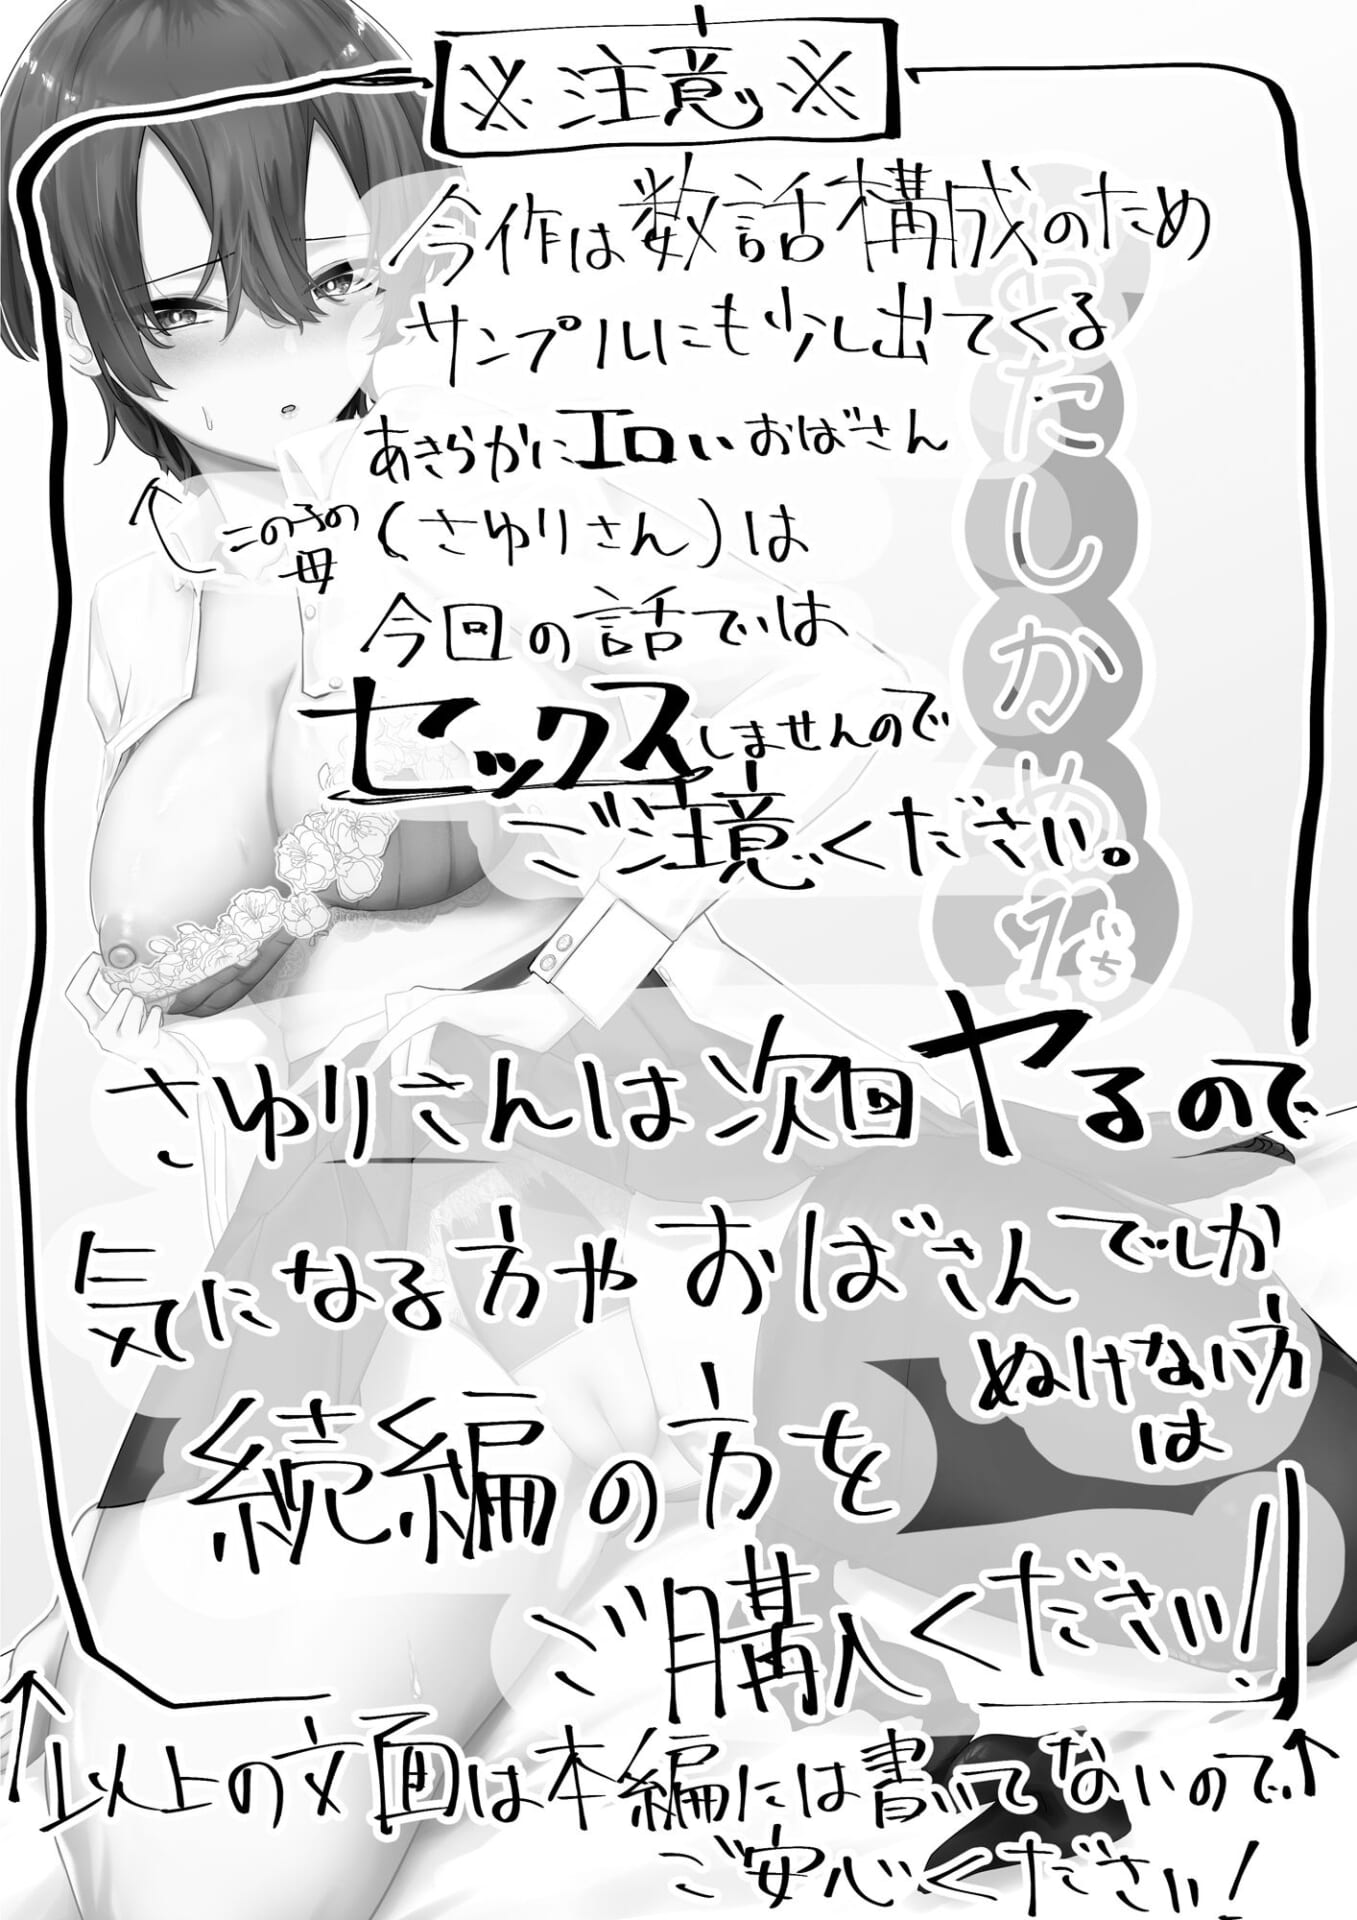 ※注意※
今作は数話構成のため
サンプルにも少し出てくる
あきらかにエロいおばさん
この子の母
(さゆりさん)は
今回の話では
セックスしませんので
ご注意ください。
さゆりさんは次回ヤるので
気になる方やおばさんでしか
ぬけない方
は
続編の方を
ご購入ください!
以上の文面は本編には書いてないので
ご安心ください!
たしかめ
1
いち